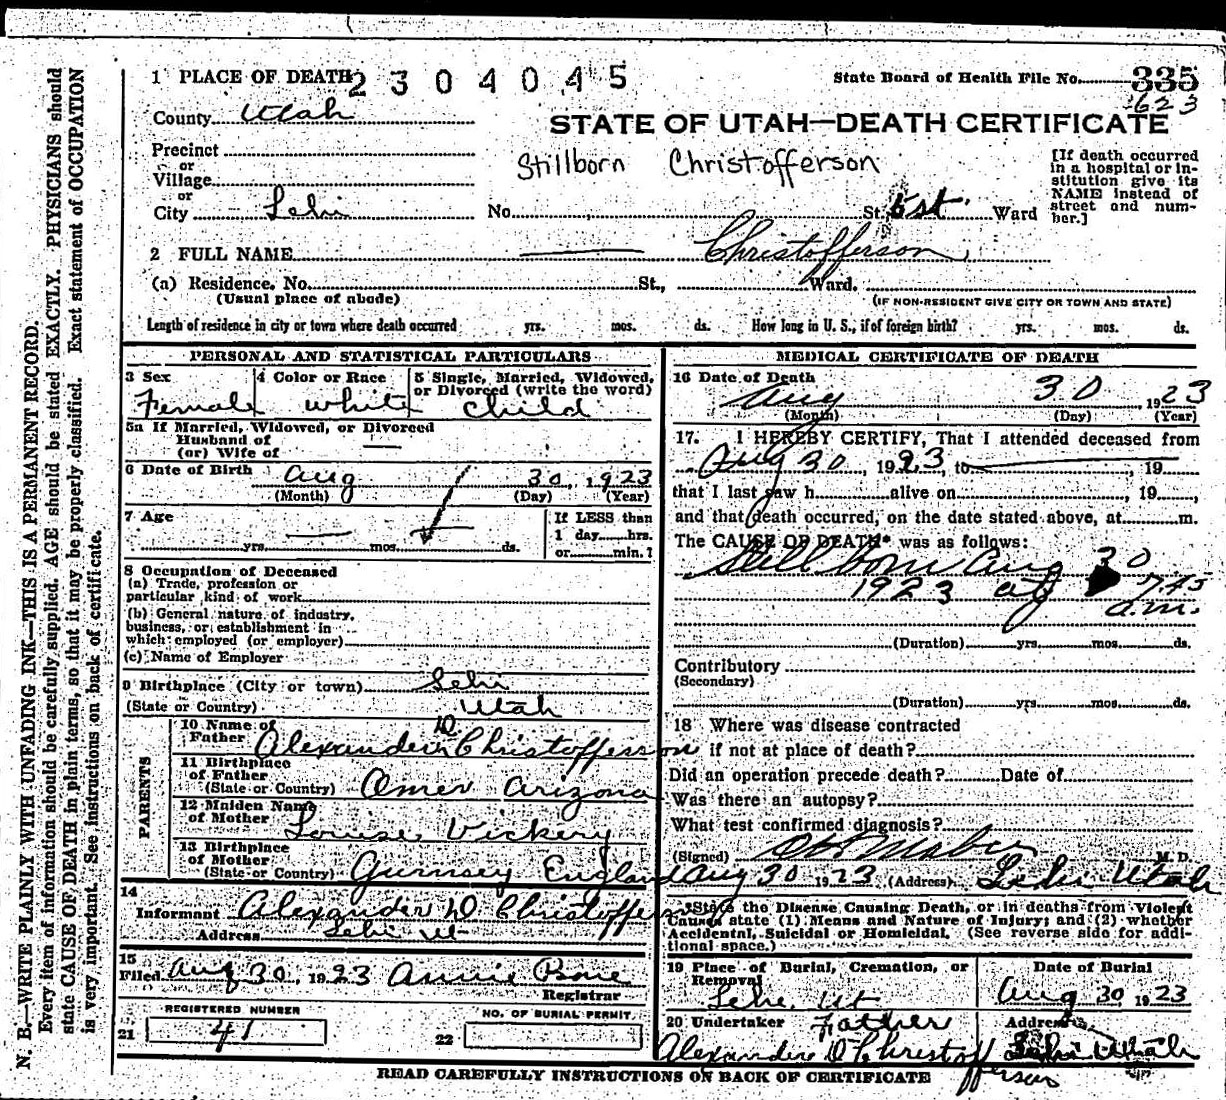 1 PLACE OF DEATH
2304045
State Board of Health File No. 335
623
County Utah
STATE OF UTAH—DEATH CERTIFICATE
Stillborn Christofferson
Precinct
or
Village
or
City Lehi No. St., 5st. Ward
[If death occurred
in a hospital or in-
stitution give its
NAME instead of
street and num-
ber.]
2 FULL NAME — Christofferson
(a) Residence. No. St., Ward.
(Usual place of abode)
(IF NON-RESIDENT GIVE CITY OR TOWN AND STATE)
Length of residence in city or town where death occurred yrs. mos. ds. How long in U. S., if of foreign birth? yrs. mos. ds.
PERSONAL AND STATISTICAL PARTICULARS
3 Sex
Female
4 Color or Race
white
5 Single, Married, Widowed,
or Divorced (write the word)
child
5a If Married, Widowed, or Divorced
Husband of
(or) Wife of —
6 Date of Birth Aug 30, 1923
(Month) (Day) (Year)
7 Age
— yrs. — mos. — ds.
If LESS than
1 day hrs.
or min. ?
8 Occupation of Deceased
(a) Trade, profession or
particular kind of work
(b) General nature of industry,
business, or establishment in
which employed (or employer)
(c) Name of Employer
9 Birthplace (City or town) Lehi
(State or Country) Utah
PARENTS
10 Name of
Father Alexander D Christofferson
11 Birthplace
of Father
(State or Country) Omer Arizona
12 Maiden Name
of Mother Louise Vickery
13 Birthplace
of Mother
(State or Country) Gurnsey England
14
Informant Alexander D Christofferson
Address Lehi Ut
15
Filed Aug 30, 1923 Annie Bone
Registrar
REGISTERED NUMBER
21 41
NO. OF BURIAL PERMIT.
22
MEDICAL CERTIFICATE OF DEATH
16 Date of Death
Aug 30 1923
(Month) (Day) (Year)
17. I HEREBY CERTIFY, That I attended deceased from
Aug 30, 1923, to —, 19
that I last saw h alive on , 19 ,
and that death occurred, on the date stated above, at m.
The CAUSE OF DEATH* was as follows:
Still born Aug 30
1923 at 7.45
a.m.
(Duration) yrs. mos. ds.
Contributory
(Secondary)
(Duration) yrs. mos. ds.
18 Where was disease contracted
if not at place of death?
Did an operation precede death? Date of
Was there an autopsy?
What test confirmed diagnosis?
(Signed) M. D.
Aug 30 1923 (Address) Lehi Utah
*State the Disease Causing Death, or in deaths from Violent
Causes state (1) Means and Nature of Injury; and (2) whether
Accidental, Suicidal or Homicidal. (See reverse side for addi-
tional space.)
19 Place of Burial, Cremation, or
Removal
Lehi Ut
Date of Burial
Aug 30 1923
20 Undertaker Father
Alexander D Christofferson
Address
Lehi Utah
READ CAREFULLY INSTRUCTIONS ON BACK OF CERTIFICATE
N. B.—WRITE PLAINLY WITH UNFADING INK—THIS IS A PERMANENT RECORD.
Every item of information should be carefully supplied. AGE should be stated EXACTLY. PHYSICIANS should
state CAUSE OF DEATH in plain terms, so that it may be properly classified. Exact statement of OCCUPATION
is very important. See instructions on back of certificate.